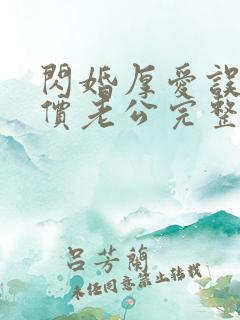 閃婚厚愛誤
價老公完整
呂芳蘭
未經同意禁止轉載